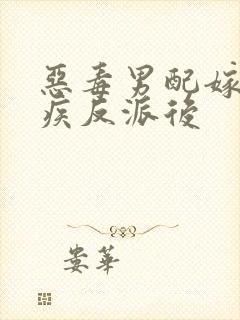 惡毒男配嫁
疾反派後
婁華